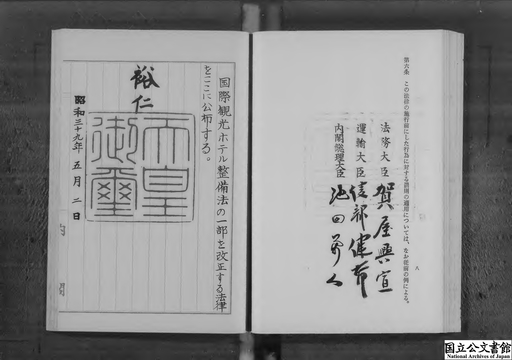 第六条 この法律の施行前にした行為に対する罰則の適用については、なお従前の例による。
八
法務大臣 賀屋興宣
運輸大臣 綾部健太郎
内閣総理大臣 池田勇人
国際観光ホテル整備法の一部を改正する法律
をここに公布する。
裕仁
天皇
御璽
昭和三十九年 五月 二日
国立公文書館
National Archives of Japan